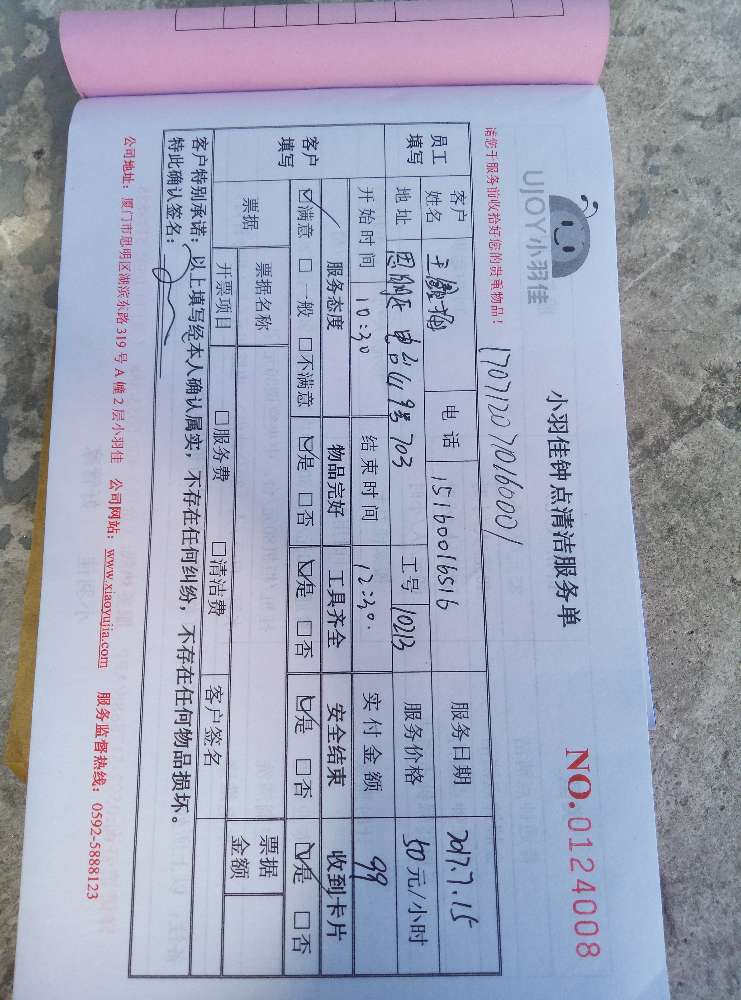 UJOY小羽佳
小羽佳钟点清洁服务单
NO.0124008
请您于服务前收拾好您的贵重物品！
1707120710160001
员工填写 客户姓名 电话 15160016516 服务日期 2017.7.15
地址 思明区 电台山9号703 工号 10213 服务价格 50元/小时
开始时间 10:30 结束时间 12:30. 实付金额 99
客户填写 服务态度 物品完好 工具齐全 安全结束 收到卡片
☑满意 □一般 □不满意 ☑是 □否 ☑是 □否 ☑是 □否 ☑是 □否
票据 票据名称 票据金额
开票项目 □服务费 □清洁费 客户签名
客户特别承诺：以上填写经本人确认属实，不存在任何纠纷，不存在任何物品损坏。
特此确认签名：
公司地址：厦门市思明区湖滨东路319号A幢2层小羽佳 公司网站：www.xiaoyujia.com 服务监督热线：0592-5888123